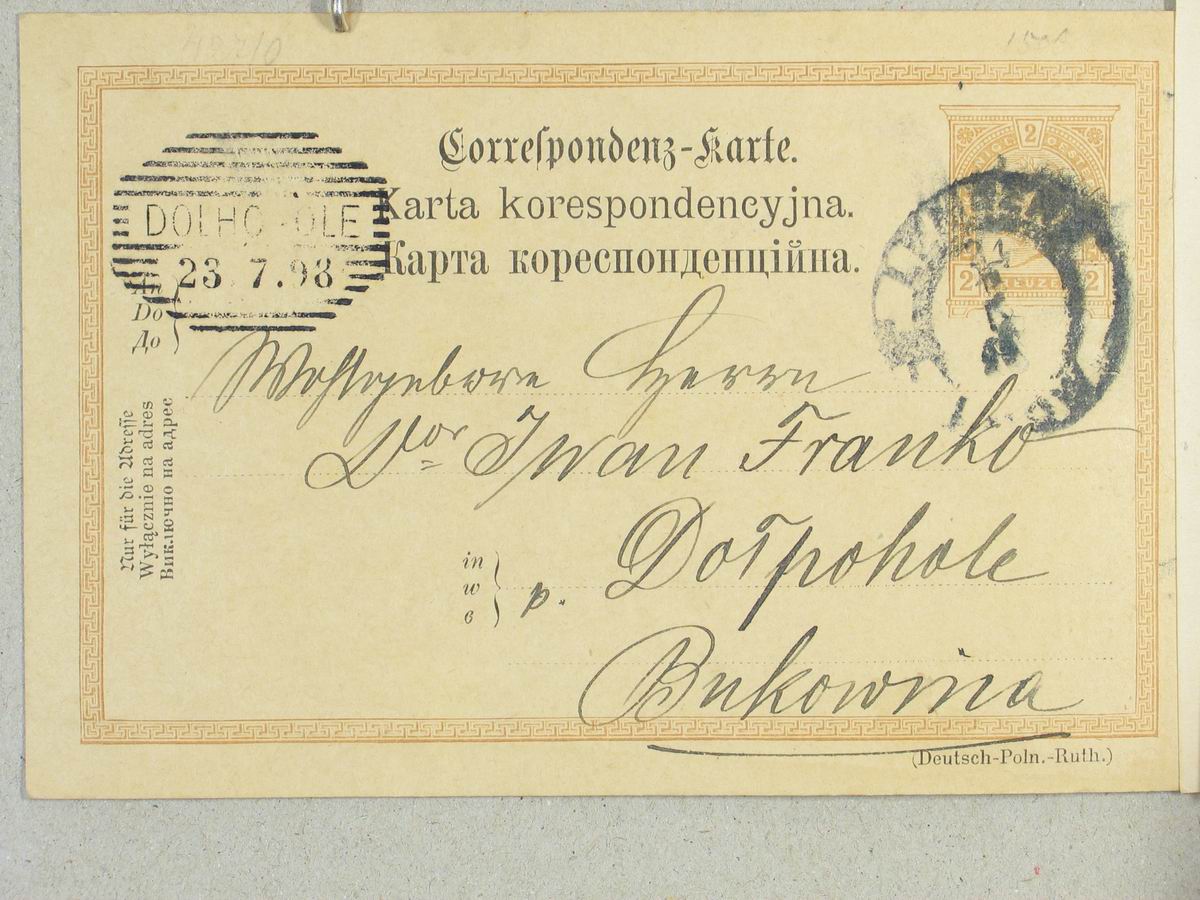 Correspondenz-Karte.
Karta korespondencyjna.
Карта кореспонденційна.
DOLHOPOLE
23 7.98
2
2 KREUZER 2
An
Do
До
Wohlgebore Herrn
Dor Iwan Franko
in
w
в
p. Dołpohole
Bukowina
Nur für die Adresse
Wyłącznie na adres
Виключно на адрес
(Deutsch-Poln.-Ruth.)